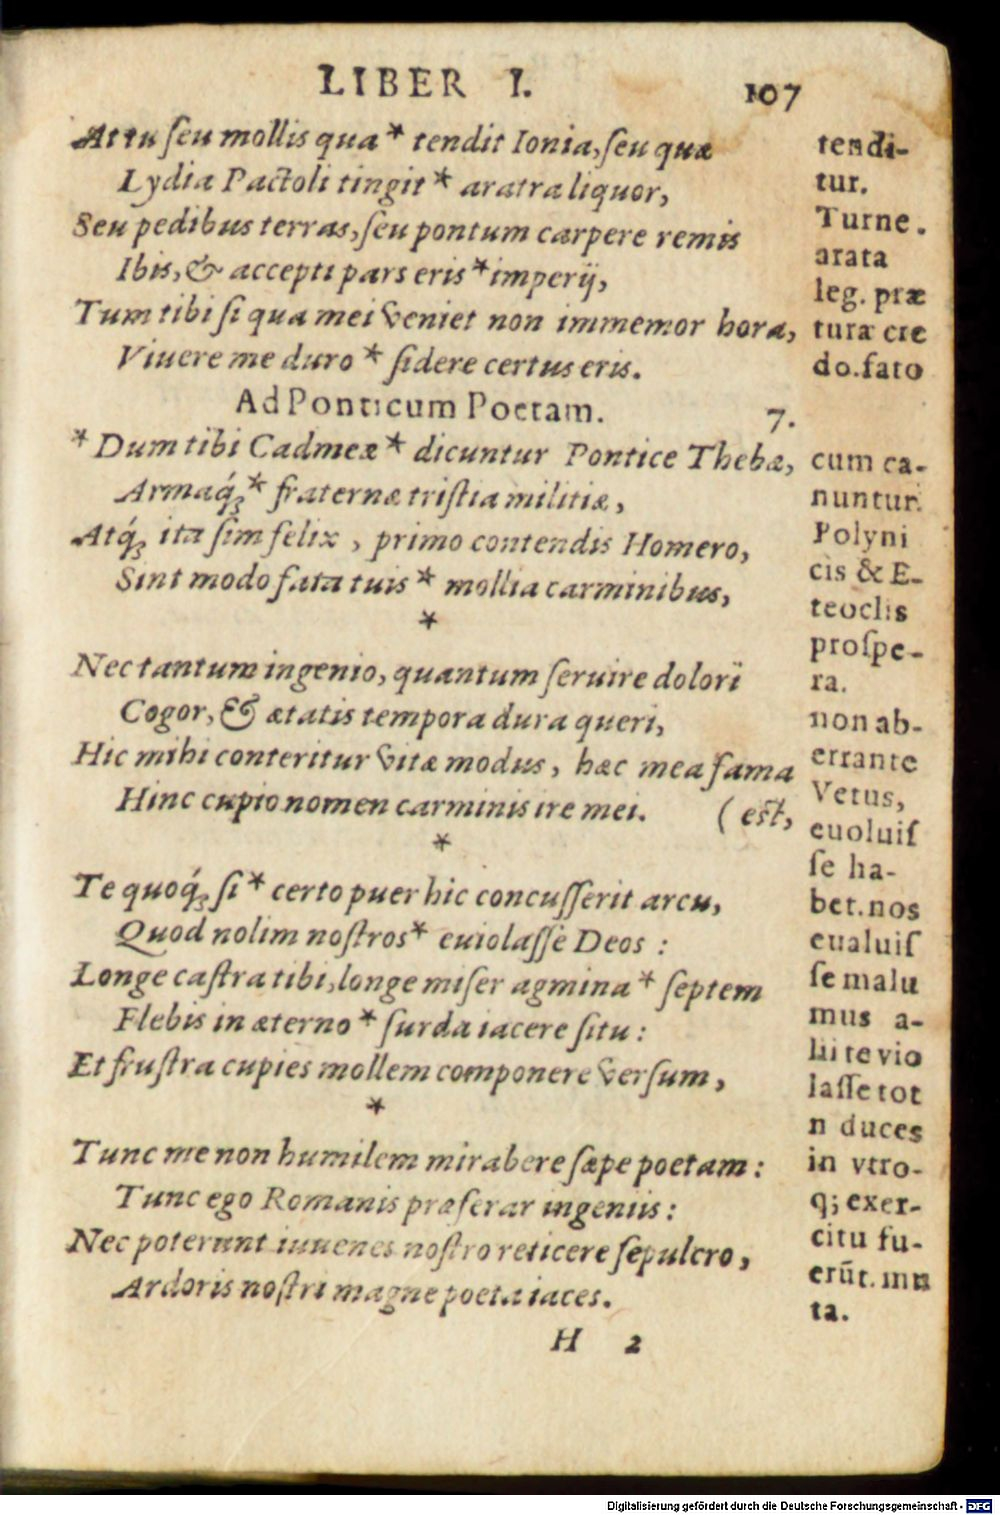 LIBER I. 107
At tu ſeu mollis qua * tendit Ionia, ſeu quæ
Lydia Pactoli tingit * aratra liquor,
Seu pedibus terras, ſeu pontum carpere remis
Ibis, & accepti pars eris * imperij,
Tum tibi ſi qua mei veniet non immemor hora,
Viuere me duro * ſidere certus eris.
Ad Ponticum Poetam. 7.
* Dum tibi Cadmeæ * dicuntur Pontice Thebæ,
Armaq́ꝫ * fraternæ triſtia militiæ,
Atq́ꝫ ita ſim felix, primo contendis Homero,
Sint modo fata tuis * mollia carminibus,
*
Nec tantum ingenio, quantum ſeruire dolori
Cogor, & ætatis tempora dura queri,
Hic mihi conteritur vitæ modus, hæc mea fama
Hinc cupio nomen carminis ire mei. (eſt,
*
Te quoq́ꝫ ſi * certo puer hic concuſſerit arcu,
Quod nolim noſtros * euiolaſſe Deos :
Longe caſtra tibi, longe miſer agmina * ſeptem
Flebis in æterno * ſurda iacere ſitu :
Et fruſtra cupies mollem componere verſum,
*
Tunc me non humilem mirabere ſæpe poetam :
Tunc ego Romanis præferar ingeniis :
Nec poterunt iuuenes noſtro reticere ſepulcro,
Ardoris noſtri magne poeta iaces.
H 2
tendi-
tur.
Turne.
arata
leg. præ
turæ cre
do. fato
cum ca-
nuntur.
Polyni
cis & E-
teoclis
proſpe-
ra.
non ab-
errante
Vetus,
euoluiſ
ſe ha-
bet. nos
eualuiſ
ſe malu
mus a-
lii te vio
laſſe tot
n duces
in vtro-
q; exer-
citu fu-
erūt. mu
ta.
Digitalisierung gefördert durch die Deutsche Forschungsgemeinschaft - DFG